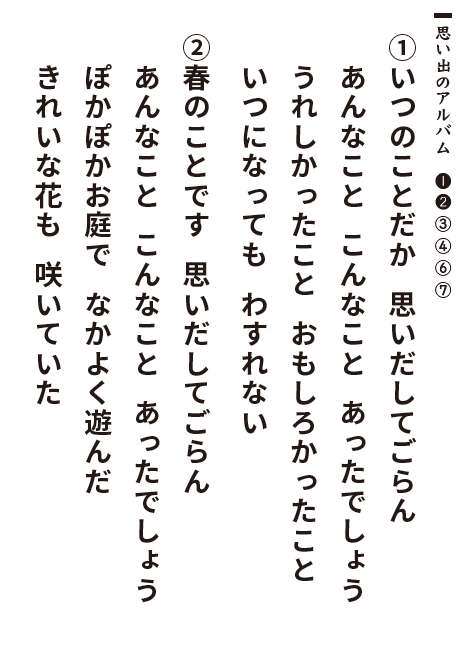 思い出のアルバム ❶❷③④⑥⑦
①いつのことだか 思いだしてごらん
あんなこと こんなこと あったでしょう
うれしかったこと おもしろかったこと
いつになっても わすれない
②春のことです 思いだしてごらん
あんなこと こんなこと あったでしょう
ぽかぽかお庭で なかよく遊んだ
きれいな花も 咲いていた